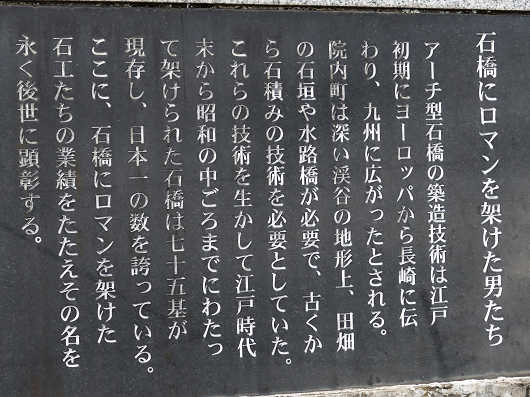 石橋にロマンを架けた男たち
アーチ型石橋の築造技術は江戸
初期にヨーロッパから長崎に伝
わり、九州に広がったとされる。
院内町は深い渓谷の地形上、田畑
の石垣や水路橋が必要で、古くか
ら石積みの技術を必要としていた。
これらの技術を生かして江戸時代
末から昭和の中ごろまでにわたっ
て架けられた石橋は七十五基が
現存し、日本一の数を誇っている。
ここに、石橋にロマンを架けた
石工たちの業績をたたえその名を
永く後世に顕彰する。